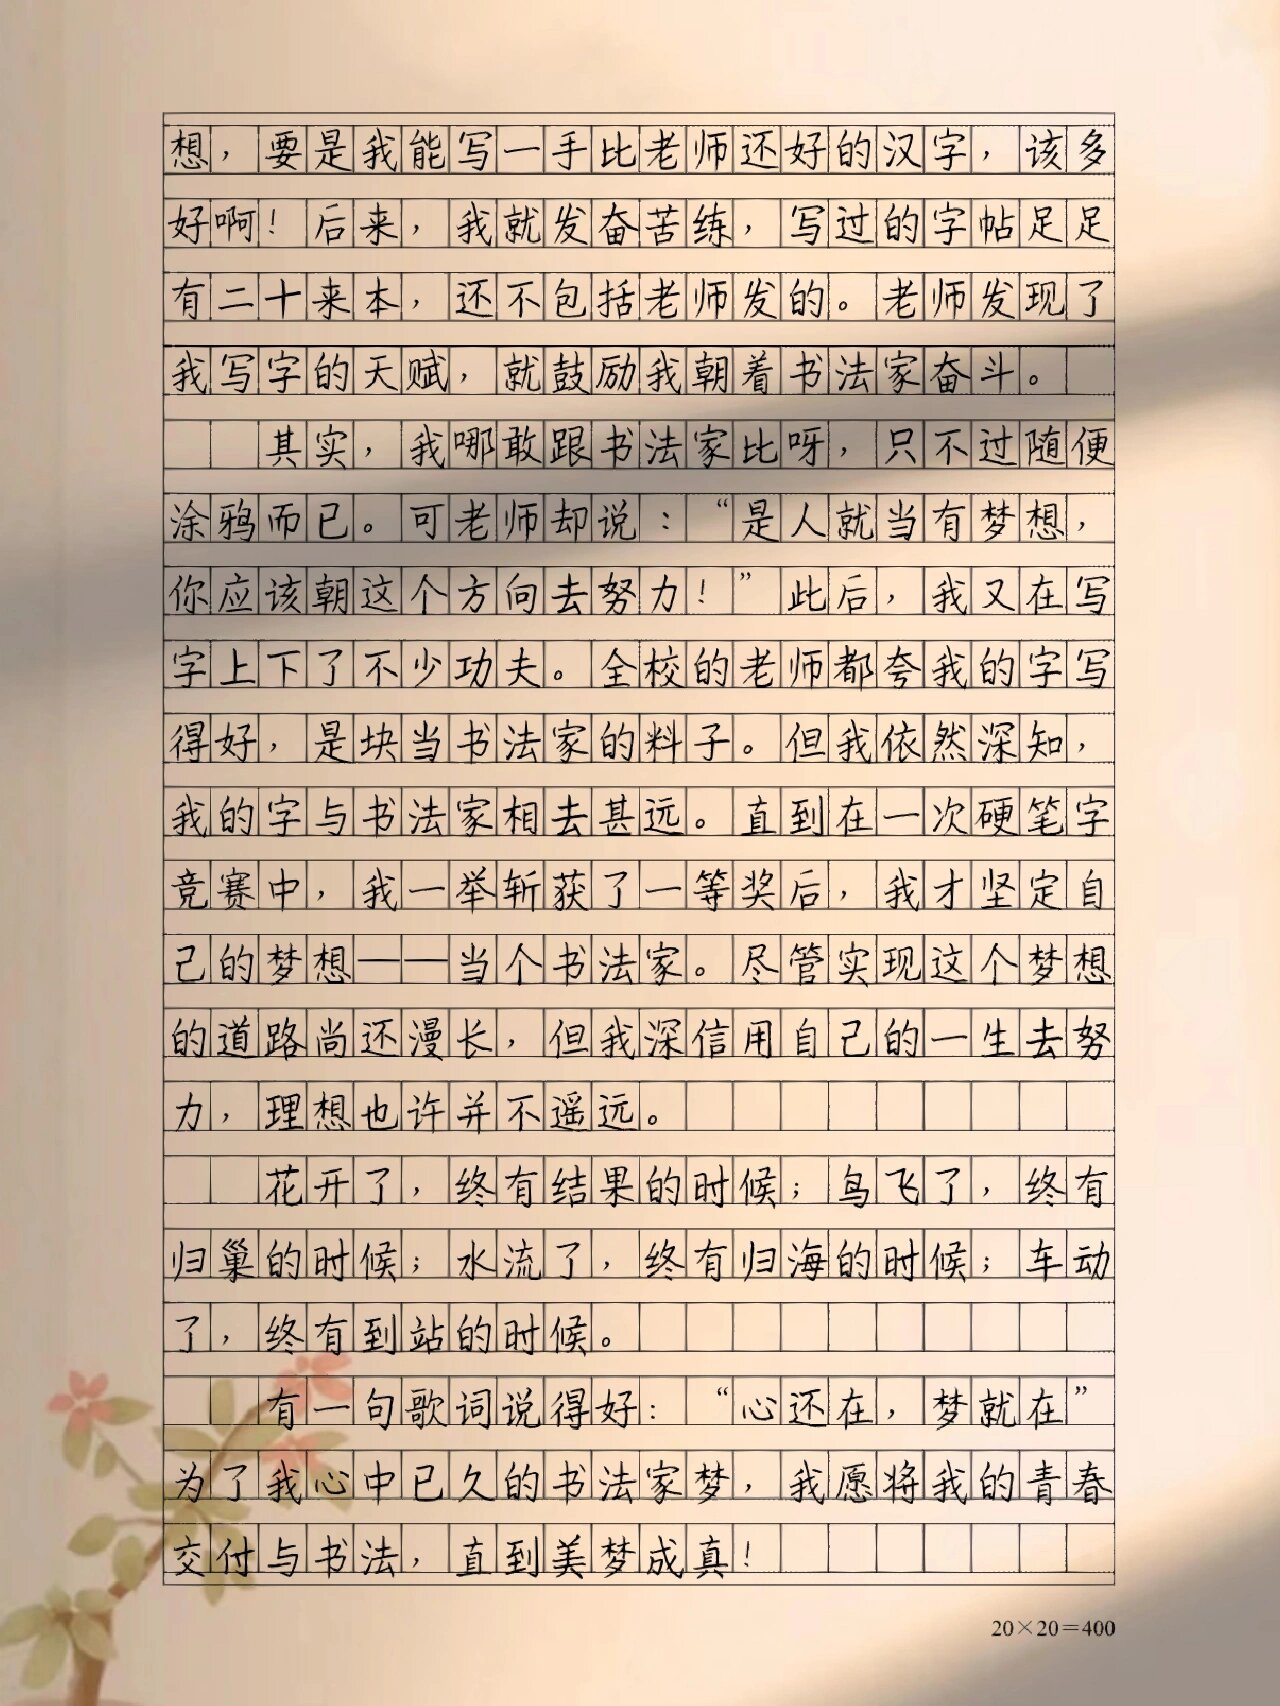 想，要是我能写一手比老师还好的汉字，该多
好啊！后来，我就发奋苦练，写过的字帖足足
有二十来本，还不包括老师发的。老师发现了
我写字的天赋，就鼓励我朝着书法家奋斗。
其实，我哪敢跟书法家比呀，只不过随便
涂鸦而已。可老师却说：“是人就当有梦想，
你应该朝这个方向去努力！”此后，我又在写
字上下了不少功夫。全校的老师都夸我的字写
得好，是块当书法家的料子。但我依然深知，
我的字与书法家相去甚远。直到在一次硬笔字
竞赛中，我一举斩获了一等奖后，我才坚定自
己的梦想——当个书法家。尽管实现这个梦想
的道路尚还漫长，但我深信用自己的一生去努
力，理想也许并不遥远。
花开了，终有结果的时候；鸟飞了，终有
归巢的时候；水流了，终有归海的时候；车动
了，终有到站的时候。
有一句歌词说得好：“心还在，梦就在”
为了我心中已久的书法家梦，我愿将我的青春
交付与书法，直到美梦成真！
20×20=400